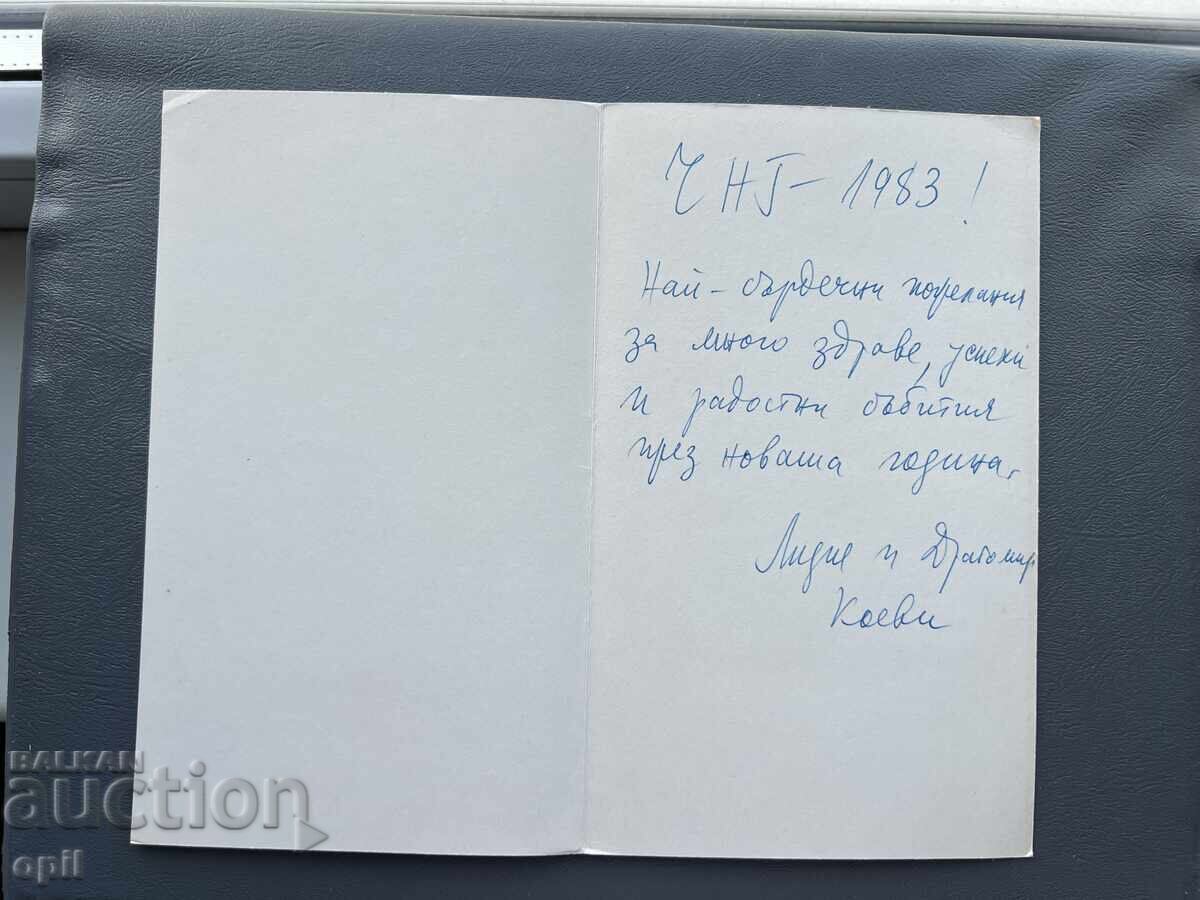 ЧНГ - 1983!
Най-сърдечни пожелания
за много здраве, успехи
и радостни събития
през новата година.
Лидие и Драгомир
Коеви
BALKAN
auction
opil